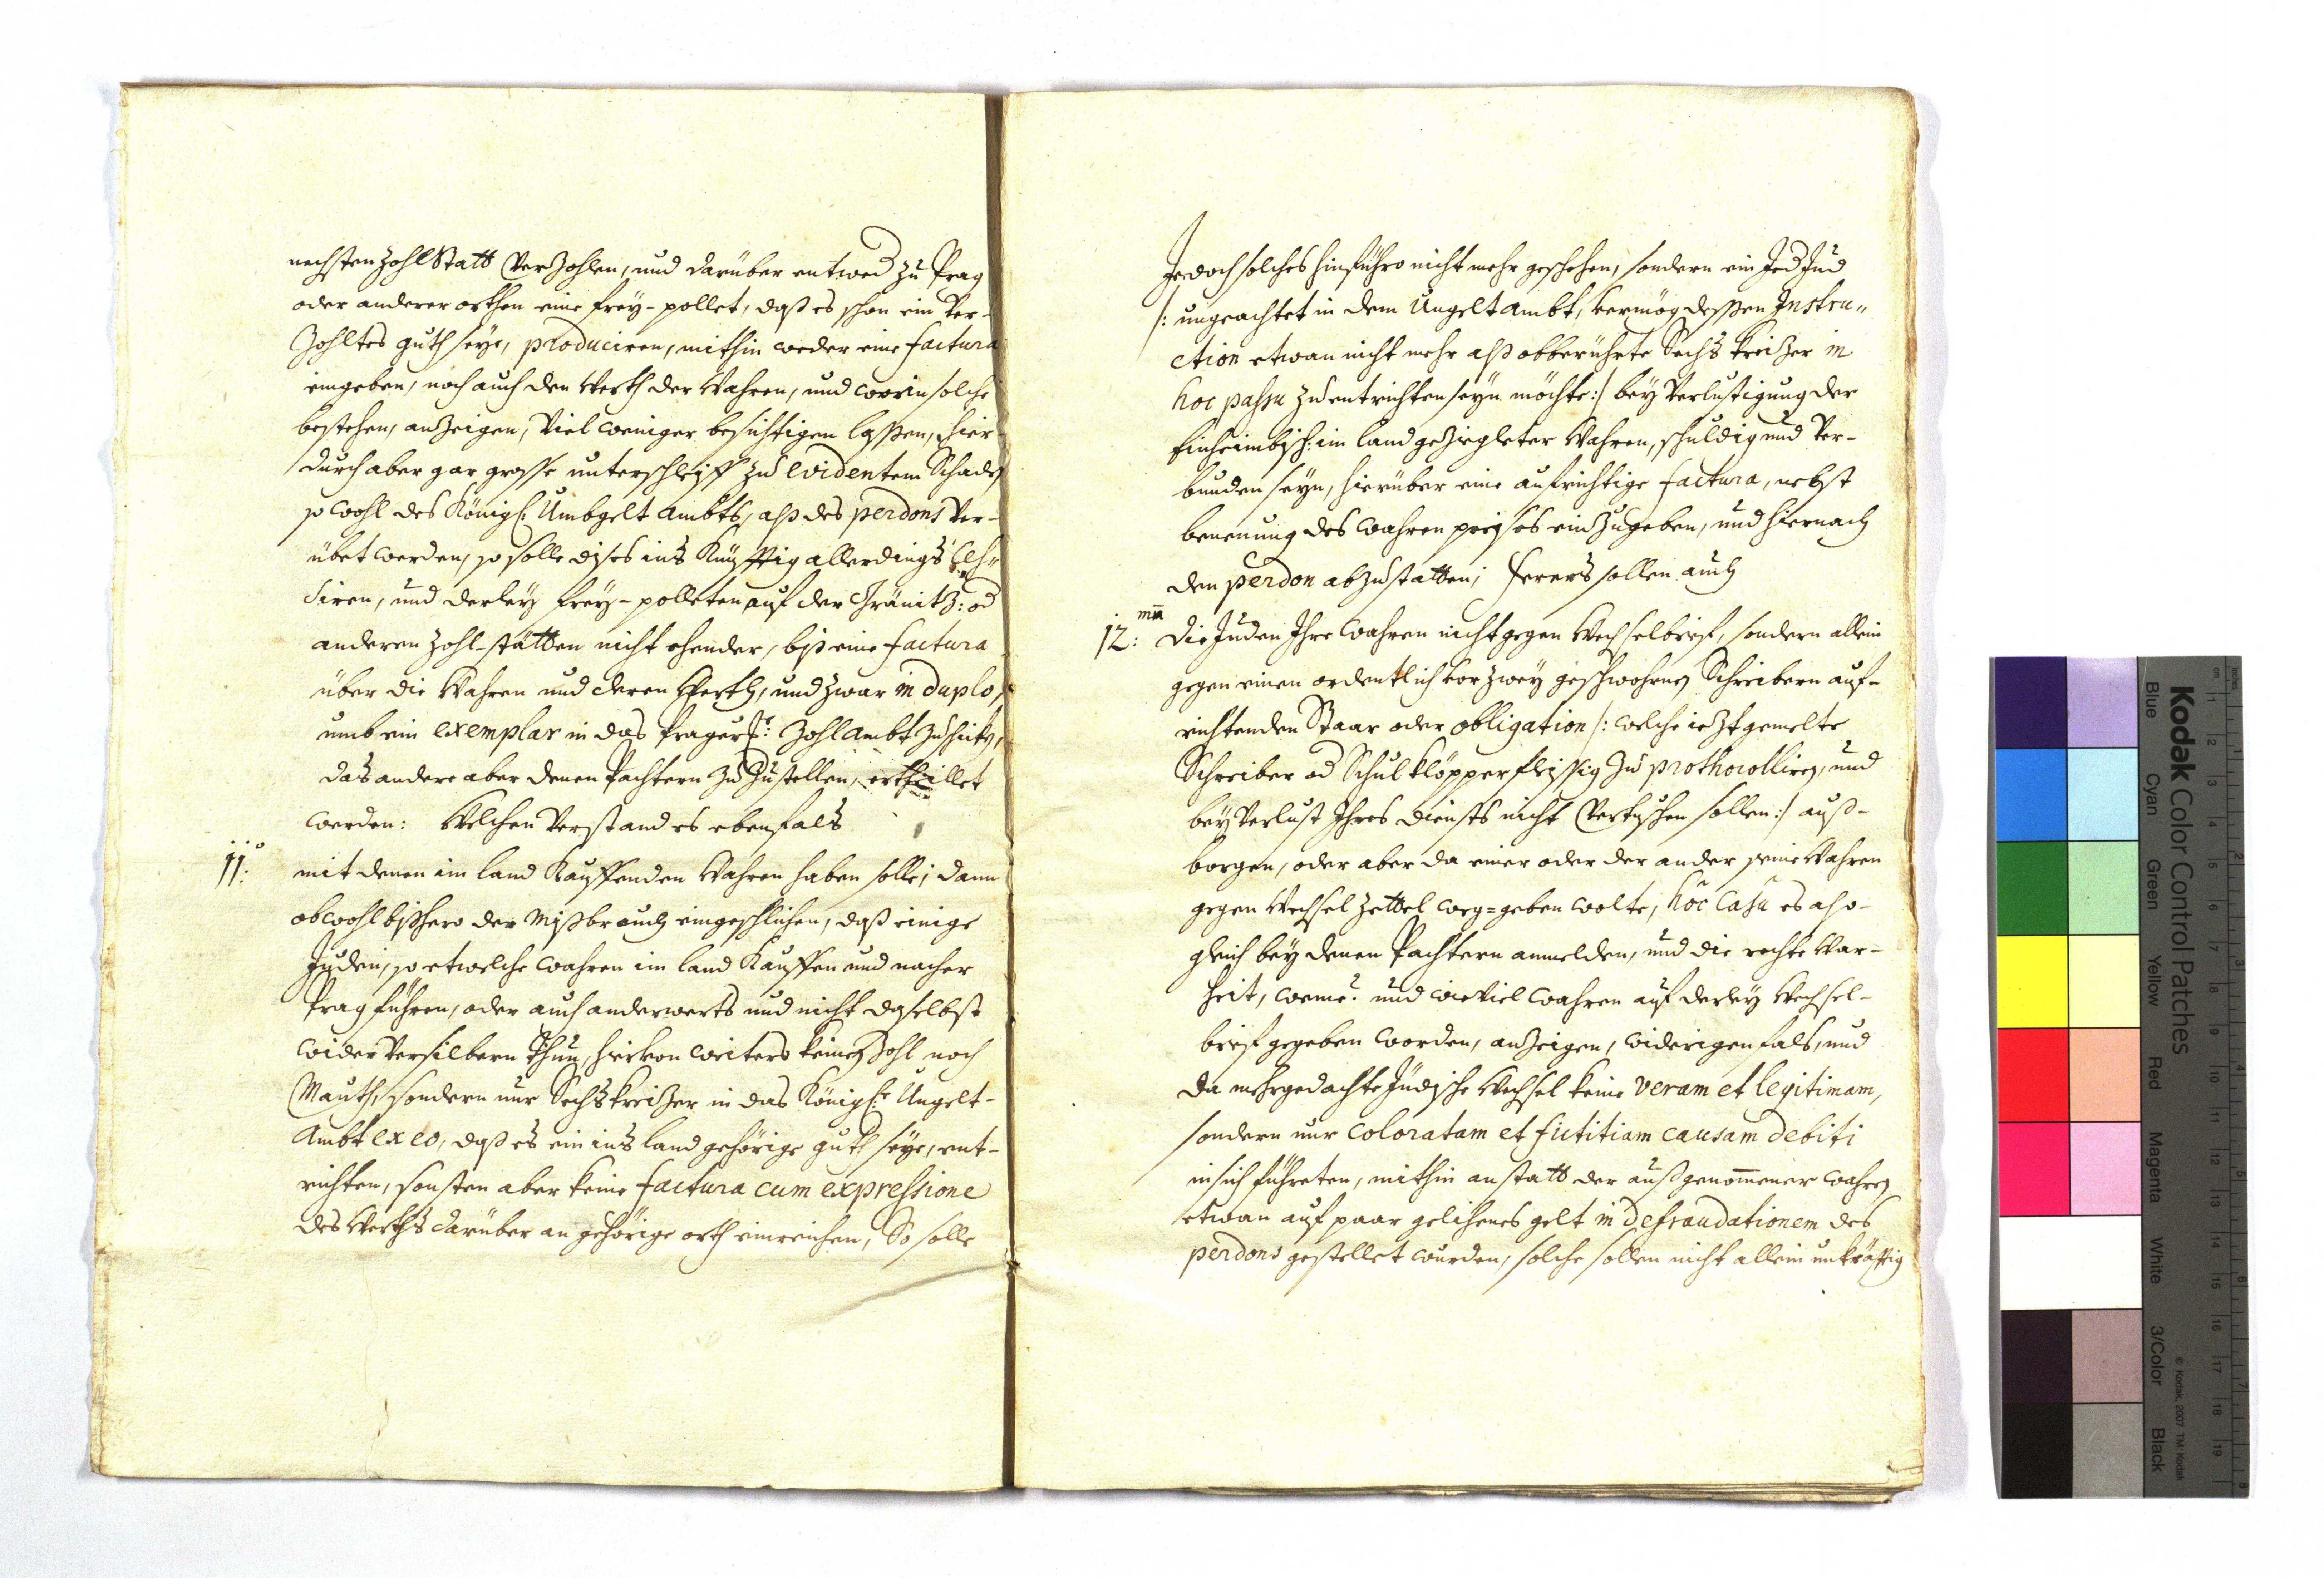 nechsten Zohl Statt Verzohlen, und darüber entwed zu Prag
oder anderer orthen eine frey-pollet, daß es schon ein Ver-
Zohltes guth seye, produciren, mithin weder eine factura
eingeben, noch auch den Werth der Wahren, und worin solche
bestehen, anzeigen, viel weniger besichtigen lassen, hier-
durch aber gar grosse unterschleiff zu evidentem Schaden
so wohl des Königl: Umbgelt Ambts, alß des perdons Ver-
übet werden, so solle dises ins Künfftig allerdings
siren, und derley frey-polleten auf der Gränitz: od
anderen Zohl-stätten nicht ehender, biß eine factura
über die Wahren und deren Werth, und zwar in duplo,
umb ein exemplar in das Prager Zohl Ambt zuschicken,
das andere aber denen Pachtern zu Zustellen, ertheillet
werden: Welchen Verstand es ebenfals
11:o mit denen im land Kauffenden Wahren haben solle; dann
obwohl bißhero der Mißbrauch eingeschlichen, daß einige
Juden, so etwelche Wahren im land Kauffen und nacher
Prag führen, oder auch anderwerts und nicht daselbst
wider Versilbern thun, hiervon weiters keinen Zohl noch
Mauth, sondern nur Sechs kreitzer in das Königl:e Ungelt-
Ambt ex eo, daß es ein ins land gehörige guth seye, ent-
richten, sonsten aber keine factura cum expressione
des Werths darüber an gehörige orth einreichen, So solle
Jedoch solches hinführo nicht mehr geschehen, sondern ein Jed Jud
/: ungeachtet in dem Ungelt Ambt, vermög dessen Instru„
ction etwan nicht mehr alß obberührte Sechs kreitzer in
hoc passu zu entrichten seyn möchte :/ bey Verlustigung der
Einheimbisch: im land geziegleter Wahren, schuldig und Ver-
bunden seyn, hierüber eine aufrichtige factura, nebst
benenung des Wahren preyses einzugeben, und hiernach
den perdon abzustatten; ferers sollen auch
12:mo die Juden Ihre Wahren nicht gegen Wechselbrief, sondern allein
gegen einen ordentlich vor zwey geschwohrnen Schreibern auf-
richtenden Staar oder obligation /: welche ietzt gemelte
Schreiber od Schulklöpper fleissig zu prothocolliren, und
bey Verlust Ihres dienstes nicht Vertuschen sollen :/ auß-
borgen, oder aber da einer oder der ander seine Wahren
gegen Wechsel Zettel weg-geben wolte, hoc casu es also-
gleich bey denen Pachtern anmelden, und die rechte War-
heit, weme? und wie viel Wahren auf derley Wechsel-
brief gegeben worden, anzeigen, widerigenfals, und
da mehrgedachte Jüdische Wechsel keine veram et legitimam,
sondern nur coloratam et fictitiam causam debiti
in sich führeten, mithin anstatt der außgenom̄ener Wahren
etwan auf paar gelihenes gelt in defraudationem des
perdons gestellet wurden, solche sollen nicht allein unkräfftig
Kodak Color Control Patches
Blue Cyan Green Yellow Red Magenta White 3/Color Black
© Kodak, 2007 TM: Kodak